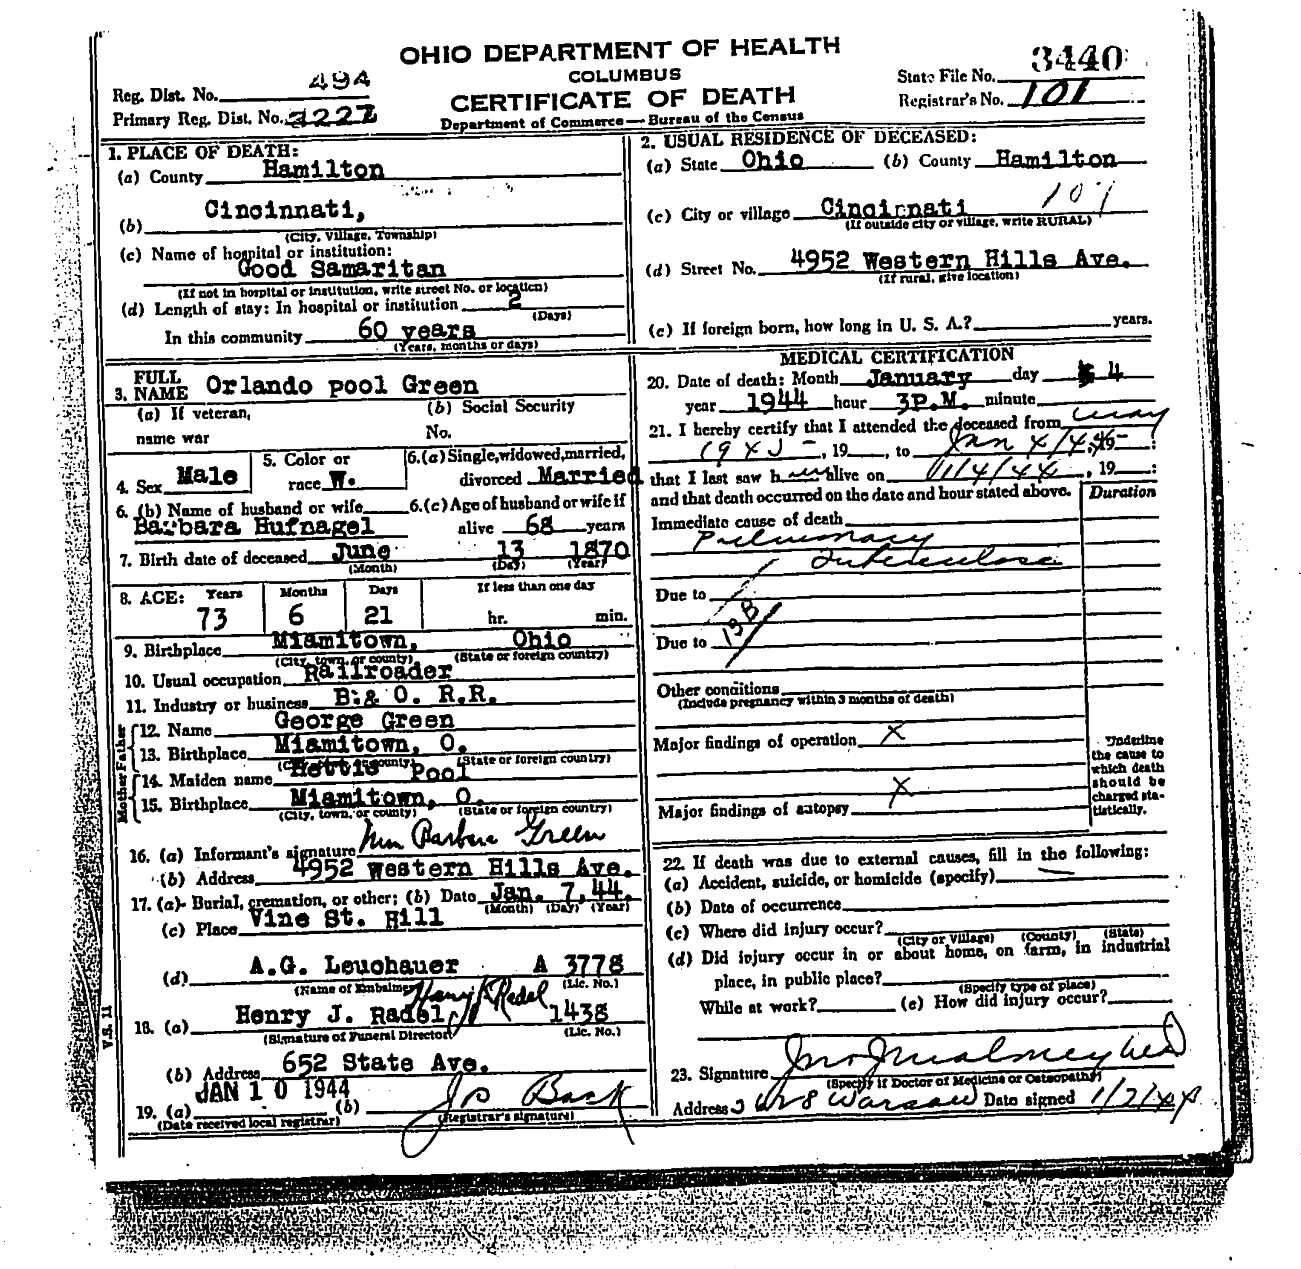 OHIO DEPARTMENT OF HEALTH
COLUMBUS
CERTIFICATE OF DEATH
Department of Commerce — Bureau of the Census
Reg. Dist. No. 494
Primary Reg. Dist. No. 3227
State File No. 3440
Registrar's No. 101
1. PLACE OF DEATH:
(a) County Hamilton
(b) Cincinnati,
(City, Village, Township)
(c) Name of hospital or institution:
Good Samaritan
(If not in hospital or institution, write street No. or location)
(d) Length of stay: In hospital or institution 2
(Days)
In this community 60 years
(Years, months or days)
2. USUAL RESIDENCE OF DECEASED:
(a) State Ohio (b) County Hamilton
107
(c) City or village Cincinnati
(If outside city or village, write RURAL)
(d) Street No. 4952 Western Hills Ave.
(If rural, give location)
(e) If foreign born, how long in U. S. A.? years.
3. FULL NAME Orlando pool Green
(a) If veteran, name war
(b) Social Security No.
4. Sex Male
5. Color or race W.
6. (a) Single, widowed, married, divorced Married
6. (b) Name of husband or wife
Barbara Hufnagel
6. (c) Age of husband or wife if alive 68 years
7. Birth date of deceased June 13 1870
(Month) (Day) (Year)
8. AGE: Years Months Days If less than one day
73 6 21 hr. min.
9. Birthplace Miamitown, Ohio
(City, town, or county) (State or foreign country)
10. Usual occupation Railroader
11. Industry or business B. & O. R.R.
Father
12. Name George Green
13. Birthplace Miamitown, O.
(State or foreign country)
Mother
14. Maiden name Hettie Pool
15. Birthplace Miamitown, O.
(City, town, or county) (State or foreign country)
16. (a) Informant's signature Barbara Green
(b) Address 4952 Western Hills Ave.
17. (a) Burial, cremation, or other; (b) Date Jan. 7, 44.
(Month) (Day) (Year)
(c) Place Vine St. Hill
(d) A.G. Leuchauer A 3778
(Name of Embalmer) (Lic. No.)
18. (a) Henry J. Radel 1438
(Signature of Funeral Director) (Lic. No.)
(b) Address 652 State Ave.
19. (a) JAN 10 1944 (b)
(Date received local registrar) (Registrar's signature)
V.S. 11
MEDICAL CERTIFICATION
20. Date of death: Month January day 4
year 1944 hour 3P.M. minute
21. I hereby certify that I attended the deceased from May
, 19 , to Jan 4/4
that I last saw h alive on 1/4/44 , 19 :
and that death occurred on the date and hour stated above.
Duration
Immediate cause of death
Pulmonary
Tuberculosis
Due to
13B
Due to
Other conditions
(Include pregnancy within 3 months of death)
Major findings of operation X
Major findings of autopsy X
Underline the cause to which death should be charged statistically.
22. If death was due to external causes, fill in the following:
(a) Accident, suicide, or homicide (specify) —
(b) Date of occurrence
(c) Where did injury occur?
(City or Village) (County) (State)
(d) Did injury occur in or about home, on farm, in industrial
place, in public place?
(Specify type of place)
While at work? (e) How did injury occur?
23. Signature
(Specify if Doctor of Medicine or Osteopathy)
Address Warsaw Date signed 1/7/44